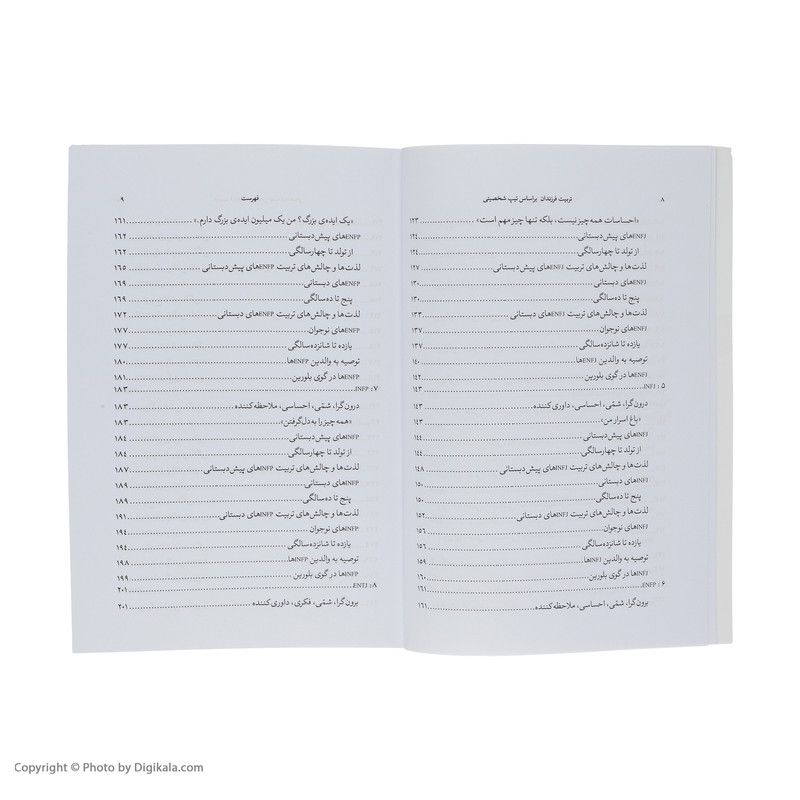 ۸ تربیت فرزندان براساس تیپ شخصیتی
«احساسات همه‌چیز نیست، بلکه تنها چیز مهم است» ۱۲۳
ENFJهای پیش‌دبستانی ۱۲۴
از تولد تا چهارسالگی ۱۲۴
لذت‌ها و چالش‌های تربیت ENFJهای پیش‌دبستانی ۱۲۷
ENFJهای دبستانی ۱۳۰
پنج تا ده‌سالگی ۱۳۰
لذت‌ها و چالش‌های تربیت ENFJهای دبستانی ۱۳۳
ENFJهای نوجوان ۱۳۷
یازده تا شانزده‌سالگی ۱۳۷
توصیه به والدین ENFJها ۱۴۰
ENFJها در گوی بلورین ۱۴۲
۵ : INFJ ۱۴۳
درون‌گرا، شمّی، احساسی، داوری‌کننده ۱۴۳
«باغ اسرار من» ۱۴۳
INFJهای پیش‌دبستانی ۱۴۴
از تولد تا چهارسالگی ۱۴۴
لذت‌ها و چالش‌های تربیت INFJهای پیش‌دبستانی ۱۴۸
INFJهای دبستانی ۱۵۰
پنج تا ده‌سالگی ۱۵۰
لذت‌ها و چالش‌های تربیت INFJهای دبستانی ۱۵۲
INFJهای نوجوان ۱۵۶
یازده تا شانزده‌سالگی ۱۵۶
توصیه به والدین INFJها ۱۵۹
INFJها در گوی بلورین ۱۶۰
۶ : ENFP ۱۶۱
برون‌گرا، شمّی، احساسی، ملاحظه‌کننده ۱۶۱
فهرست ۹
«یک ایده‌ی بزرگ؟ من یک میلیون ایده‌ی بزرگ دارم.» ۱۶۱
ENFPهای پیش‌دبستانی ۱۶۲
از تولد تا چهارسالگی ۱۶۲
لذت‌ها و چالش‌های تربیت ENFPهای پیش‌دبستانی ۱۶۵
ENFPهای دبستانی ۱۶۹
پنج تا ده‌سالگی ۱۶۹
لذت‌ها و چالش‌های تربیت ENFPهای دبستانی ۱۷۲
ENFPهای نوجوان ۱۷۷
یازده تا شانزده‌سالگی ۱۷۷
توصیه به والدین ENFPها ۱۸۰
ENFPها در گوی بلورین ۱۸۱
۷ : INFP ۱۸۳
درون‌گرا، شمّی، احساسی، ملاحظه‌کننده ۱۸۳
«همه‌چیز را به دل گرفتن» ۱۸۳
INFPهای پیش‌دبستانی ۱۸۴
از تولد تا چهارسالگی ۱۸۴
لذت‌ها و چالش‌های تربیت INFPهای پیش‌دبستانی ۱۸۷
INFPهای دبستانی ۱۸۹
پنج تا ده‌سالگی ۱۸۹
لذت‌ها و چالش‌های تربیت INFPهای دبستانی ۱۹۱
INFPهای نوجوان ۱۹۴
یازده تا شانزده‌سالگی ۱۹۴
توصیه به والدین INFPها ۱۹۸
INFPها در گوی بلورین ۱۹۹
۸ : ENTJ ۲۰۱
برون‌گرا، شمّی، فکری، داوری‌کننده ۲۰۱
Copyright © Photo by Digikala.com